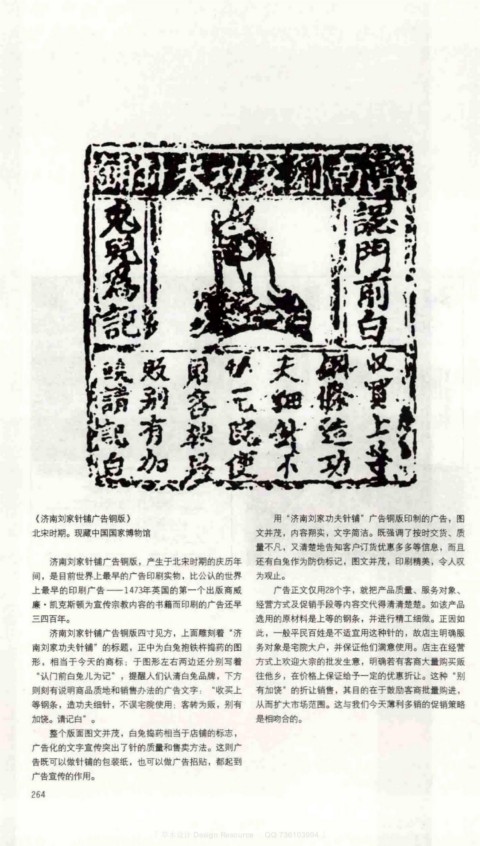 濟南劉家功夫針鋪
認門前白
兔兒爲記
收買上等
鋼條造功
夫細針不
偷工民便
用若被興
販别有加
饒請記白
《济南刘家针铺广告铜版》
北宋时期。现藏中国国家博物馆
济南刘家针铺广告铜版，产生于北宋时期的庆历年
间，是目前世界上最早的广告印刷实物，比公认的世界
上最早的印刷广告——1473年英国的第一个出版商威
廉·凯克斯顿为宣传宗教内容的书籍而印刷的广告还早
三四百年。
济南刘家针铺广告铜版四寸见方，上面雕刻着“济
南刘家功夫针铺”的标题，正中为白兔抱铁杵捣药的图
形，相当于今天的商标；于图形左右两边还分别写着
“认门前白兔儿为记”，提醒人们认清白兔品牌，下方
则刻有说明商品质地和销售办法的广告文字：“收买上
等钢条，造功夫细针，不误宅院使用；客转为贩，别有
加饶。请记白”。
整个版面图文并茂，白兔捣药相当于店铺的标志，
广告化的文字宣传突出了针的质量和售卖方法。这则广
告既可以做针铺的包装纸，也可以做广告招贴，都起到
广告宣传的作用。
用“济南刘家功夫针铺”广告铜版印制的广告，图
文并茂，内容翔实，文字简洁。既强调了按时交货、质
量不凡，又清楚地告知客户订货优惠多多等信息，而且
还有白兔作为防伪标记，图文并茂，印刷精美，令人叹
为观止。
广告正文仅用28个字，就把产品质量、服务对象、
经营方式及促销手段等内容交代得清清楚楚。如该产品
选用的原材料是上等的钢条，并进行精工细做。正因如
此，一般平民百姓是不适宜用这种针的，故店主明确服
务对象是宅院大户，并保证他们满意使用。店主在经营
方式上欢迎大宗的批发生意，明确若有客商大量购买贩
往他乡，在价格上保证给予一定的优惠折让。这种“别
有加饶”的折让销售，其目的在于鼓励客商批量购进，
从而扩大市场范围。这与我们今天薄利多销的促销策略
是相吻合的。
264